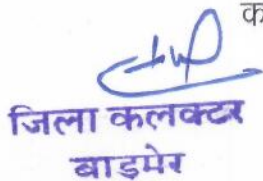 क
जिला कलक्टर
बाड़मेर